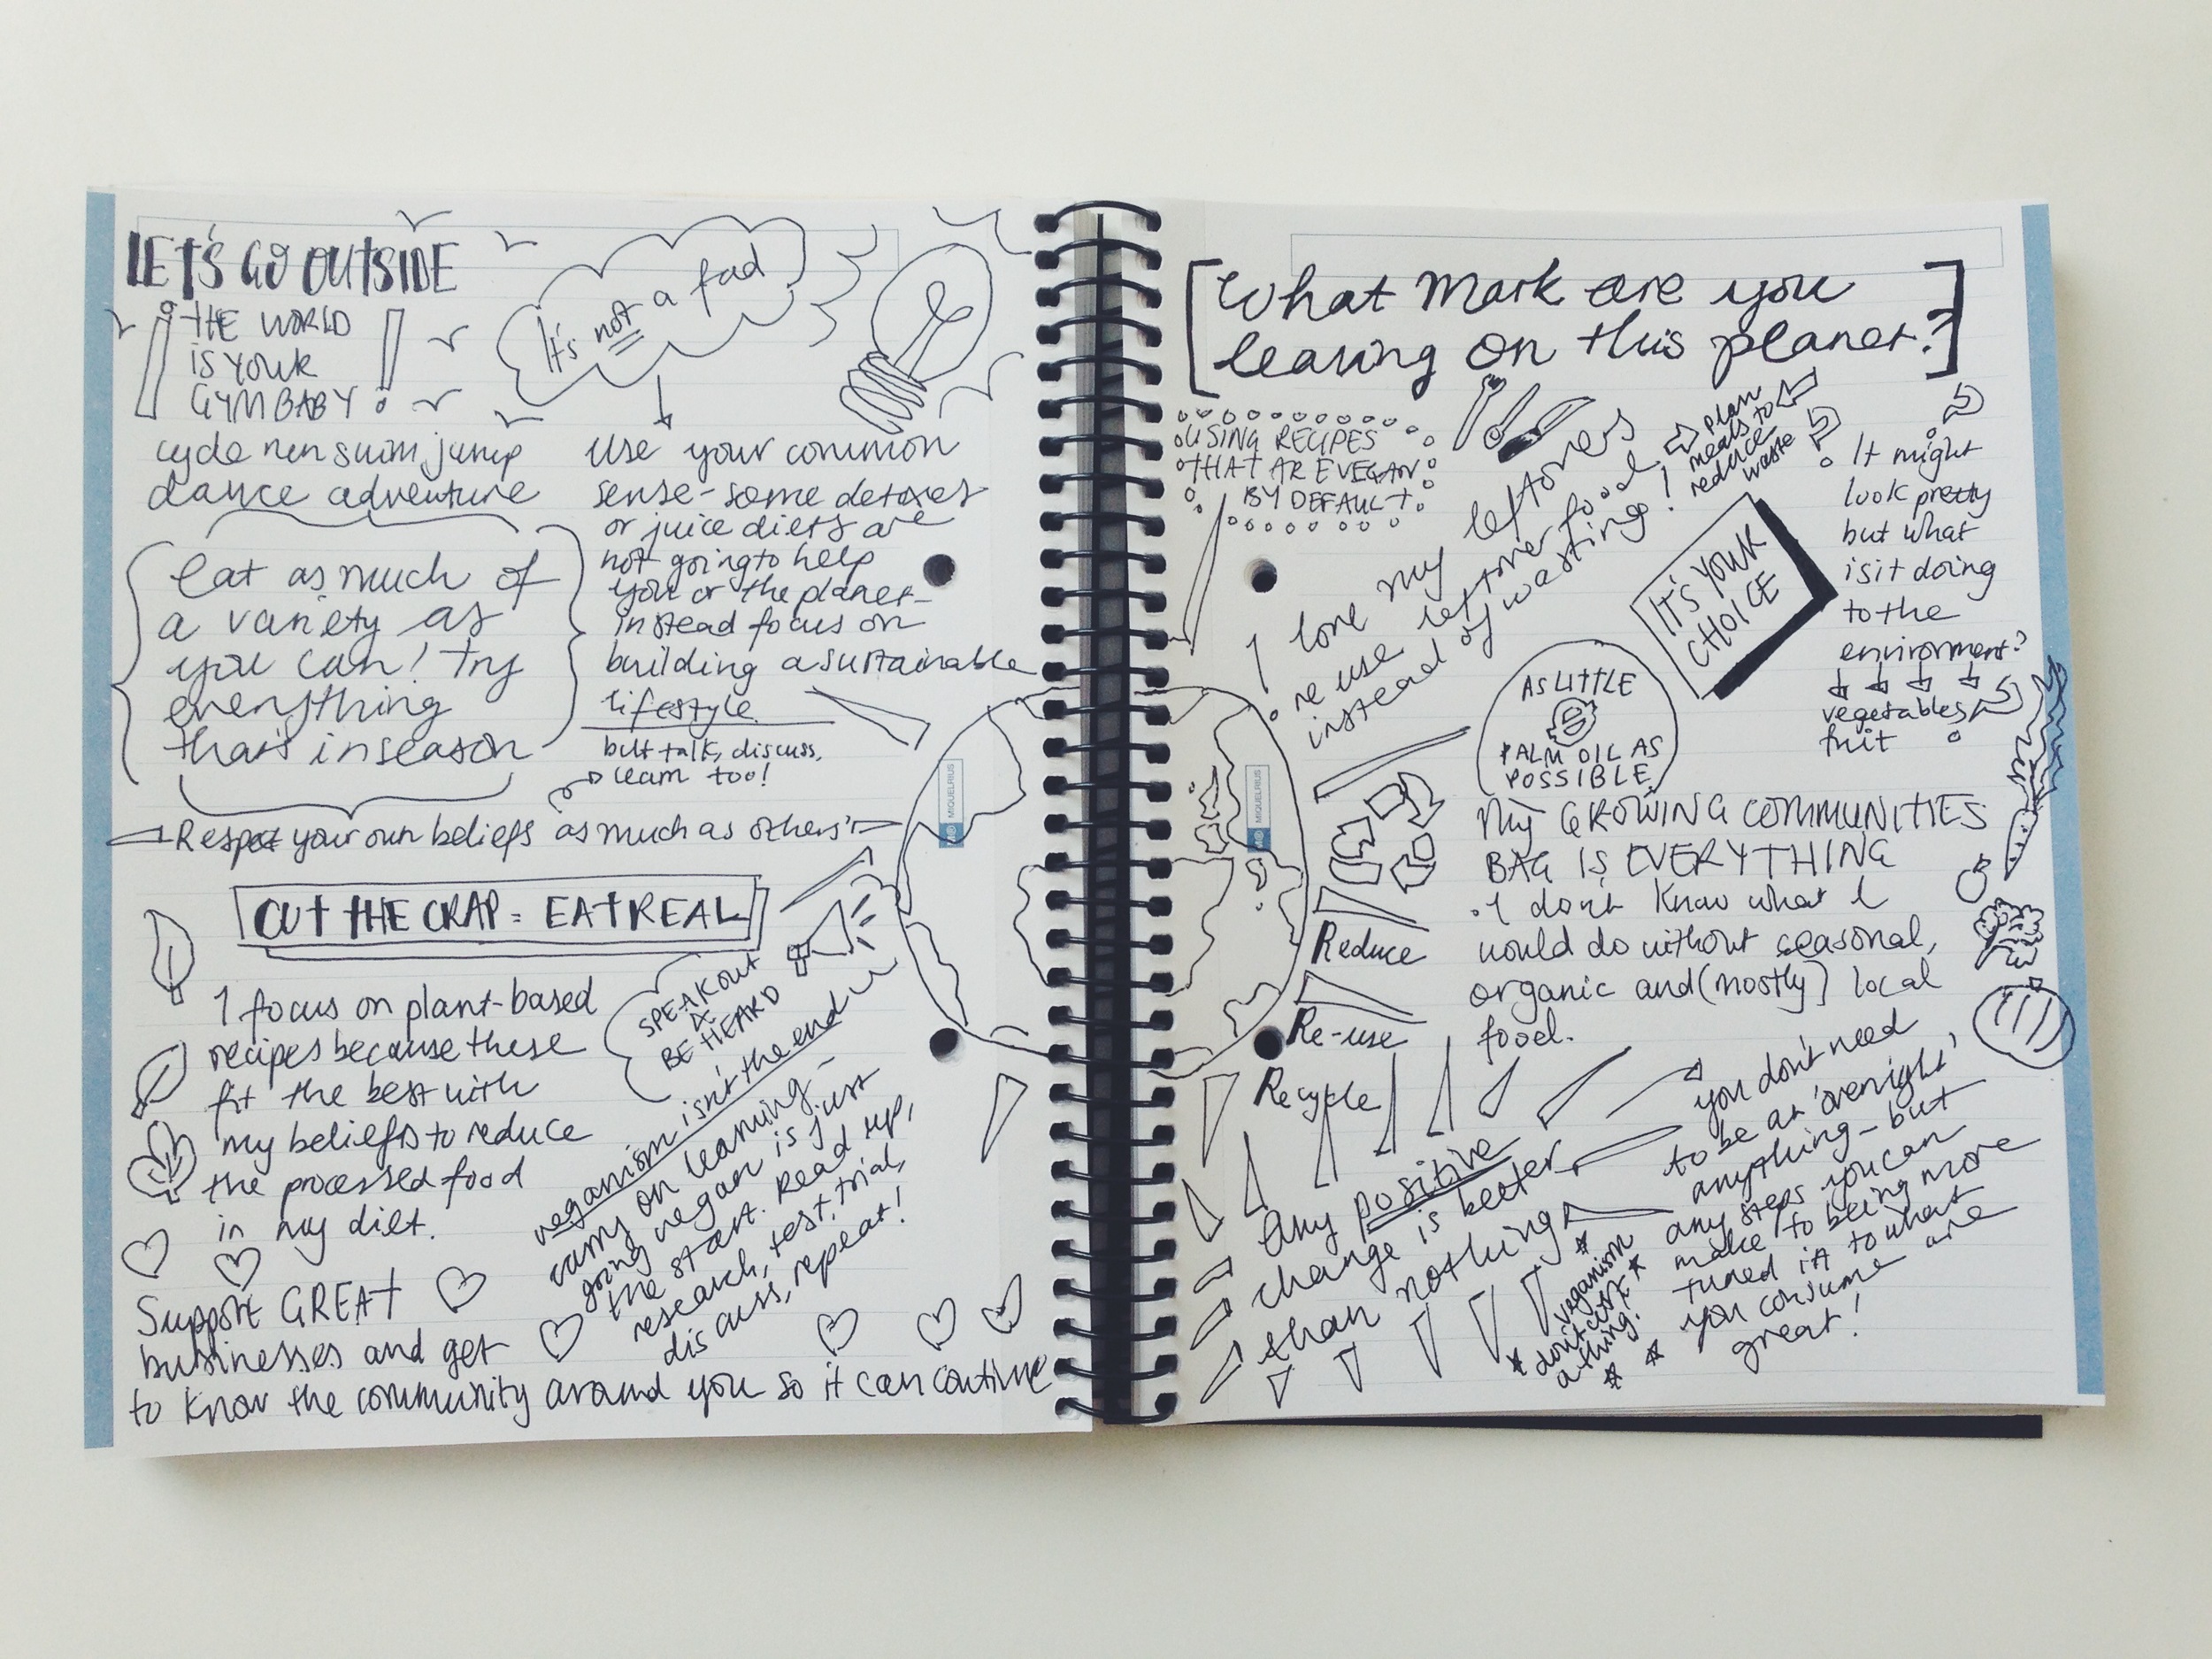 LET'S GO OUTSIDE
THE WORLD
IS YOUR
GYM BABY!
cycle run swim jump
dance adventure
Eat as much of
a variety as
you can! Try
everything
that's in season
Respect your own beliefs as much as others'
It's not a fad
Use your common
sense - some detoxes
or juice diets are
not going to help
you or the planet -
instead focus on
building a sustainable
lifestyle
but talk, discuss,
learn too!
CUT THE CRAP = EAT REAL
I focus on plant-based
recipes because these
fit the best with
my beliefs to reduce
the processed food
in my diet.
SPEAK OUT
&
BE HEARD
veganism isn't the end
carry on learning -
going vegan is just
the start. Read up,
research, test, trial,
discuss, repeat!
Support GREAT
businesses and get
to know the community around you so it can continue
MIQUELRIUS
[What mark are you
leaving on this planet?]
USING RECIPES
THAT ARE VEGAN
BY DEFAULT
I love my leftovers
re use leftover food
instead of wasting!
plan
meals to
reduce
waste
IT'S YOUR
CHOICE
It might
look pretty
but what
is it doing
to the
environment?
vegetables
fruit
AS LITTLE
PALM OIL AS
POSSIBLE
MIQUELRIUS
Reduce
Re-use
Recycle
My GROWING COMMUNITIES
BAG IS EVERYTHING
I don't know what I
would do without seasonal,
organic and (mostly) local
food.
Any positive
change is better
than nothing
you don't need
to be an 'overnight'
anything - but
any steps you can
make to being more
tuned in to what
you consume are
great!
veganism
don't cost
a thing!